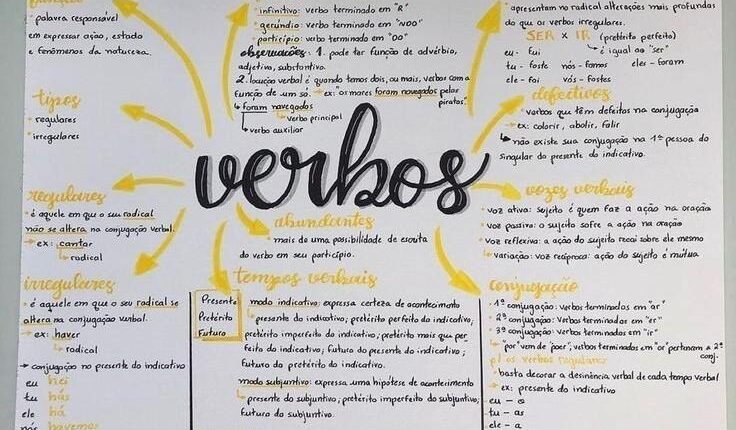 • palavra responsável
em expressar ação, estado
e fenômenos da natureza.
tipos
• regulares
• irregulares
regulares
• é aquele em que o seu radical
não se altera na conjugação verbal.
→ ex: cantar
↳ radical
irregulares
• é aquele em que o seu radical se
altera na conjugação verbal.
→ ex: haver
↳ radical
→ conjugação no presente do indicativo
eu hei
tu hás
ele há
nós havemos
• infinitivo: verbo terminado em "R"
• gerúndio: verbo terminado em "NDO"
• particípio: verbo terminado em "DO"
observações: 1. pode ter função de advérbio,
adjetivo, substantivo.
2. locução verbal é quando temos dois, ou mais, verbos com a
função de um só. → ex: "os mares foram navegados pelos
piratas".
↳ foram navegados
↳ verbo principal
↳ verbo auxiliar
verbos
abundantes
• mais de uma possibilidade de escrita
do verbo em seu particípio.
tempos verbais
Presente
Pretérito
Futuro
modo indicativo: expressa certeza de acontecimento
↳ presente do indicativo; pretérito perfeito do indicativo;
pretérito imperfeito do indicativo; pretérito mais que per
feito do indicativo; futuro do presente do indicativo;
futuro do pretérito do indicativo.
modo subjuntivo: expressa uma hipótese de acontecimento
↳ presente do subjuntivo; pretérito imperfeito do subjuntivo;
futuro do subjuntivo.
• apresentam no radical alterações mais profundas
do que os verbos irregulares.
SER x IR (pretérito perfeito)
↳ é igual ao "ser"
eu - fui
tu - foste nós - fomos eles - foram
ele - foi vós - fostes
defectivos
• verbos que têm defeitos na conjugação
→ ex: colorir, abolir, falir
↳ não existe sua conjugação na 1ª pessoa do
singular do presente do indicativo.
vozes verbais
• voz ativa: sujeito é quem faz a ação na oração
• voz passiva: o sujeito sofre a ação na oração
• voz reflexiva: a ação do sujeito recai sobre ele mesmo
↳ variação: voz recíproca: ação do sujeito é mútua
conjugação
• 1ª conjugação: verbos terminados em "ar"
• 2ª conjugação: verbos terminados em "er"
• 3ª conjugação: verbos terminados em "ir"
↳ "por" vem de "poer"; verbos terminados em "or" pertencem a 2ª
conj.
p/ os verbos regulares
• basta decorar a desinência verbal de cada tempo verbal
→ ex: presente do indicativo
eu - o
tu - as
ele - a